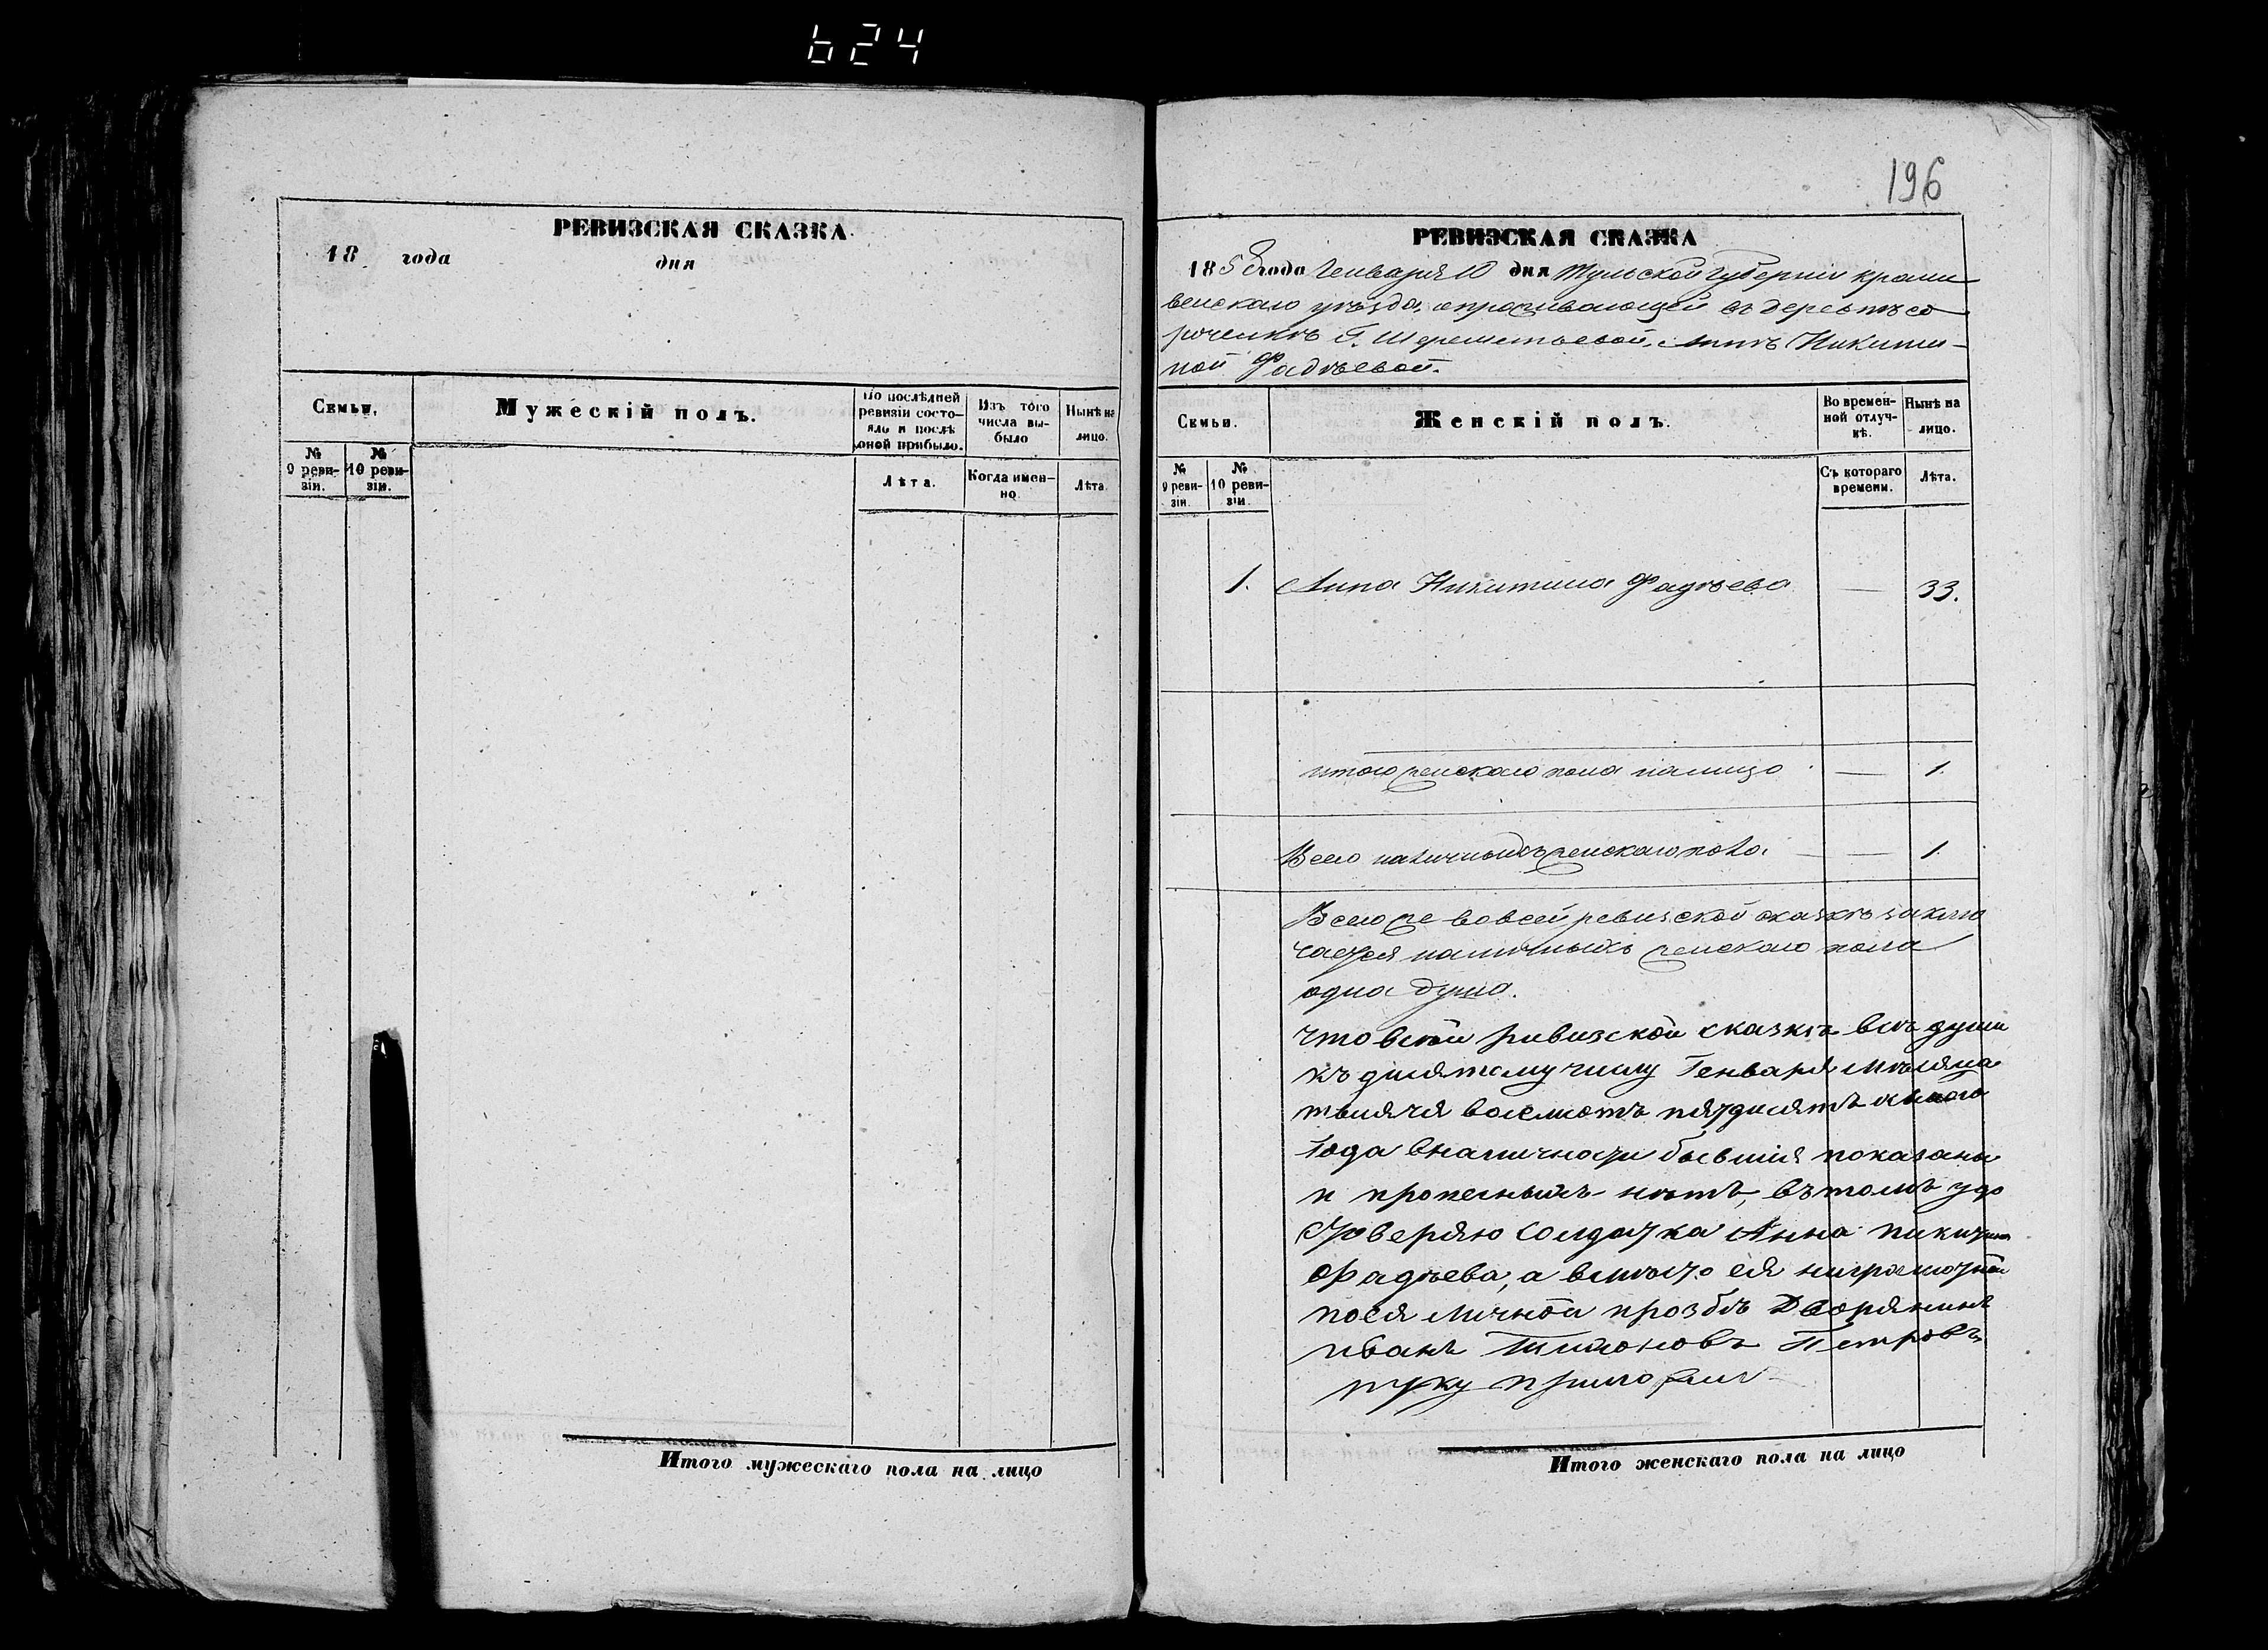 624
РЕВИЗСКАЯ СКАЗКА
18 года дня
Семьи.
Мужескій полъ.
По послѣдней ревизіи состояло и послѣ оной прибыло.
Изъ того числа выбыло
Нынѣ на лицо.
№ 9 ревизіи.
№ 10 ревизіи.
Лѣта.
Когда именно
Лѣта.
Итого мужескаго пола на лицо
196
РЕВИЗСКАЯ СКАЗКА
1858 года Генваря 10 дня Тульской Губерніи крапи
венскаго уѣзда, опроживающей въ деревнѣ со
роченкѣ Г. Шереметьевой, Аннѣ Никити-
ной Фадѣевой.
Семьи.
Женскій полъ.
Во временной отлучкѣ.
Нынѣ на лицо.
№ 9 ревизіи.
№ 10 ревизіи.
Съ котораго времени.
Лѣта.
1. Анна Никитина Фадѣева — 33.
итого женскаго пола налицо — 1.
Всего наличныхъ женскаго пола — 1.
Всегоже вовсей ревизской сказкѣ заклю
чается наличныхъ женскаго пола
одна душа.
что всѣй ривизской сказкѣ всѣ души
къ дисятому числу Генваря мѣсяца
тысяча восемсотъ пятдисятъ
года вналичности бывшия показаны
и прописныхъ нѣтъ, въ томъ удо
стоверяю солдатка Анна никитина
Фадѣева, а вмѣсто ея ниграмотной
поея личной прозбѣ Дворянинъ
иванъ Петровъ
руку приложилъ
Итого женскаго пола на лицо